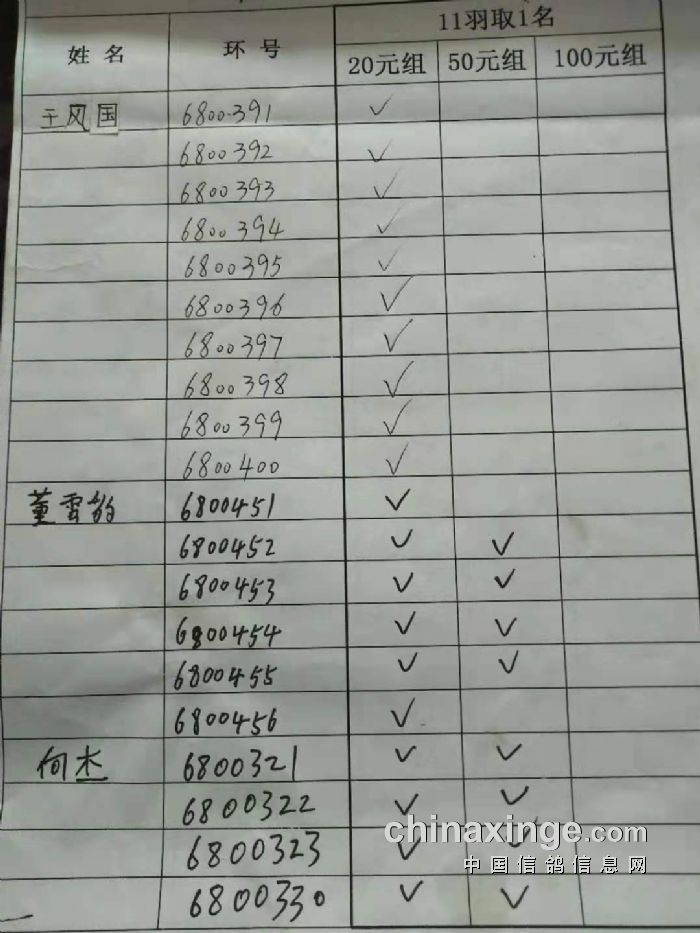 11羽取1名
姓名 环号 20元组 50元组 100元组
王风国 6800391 ✓
6800392 ✓
6800393 ✓
6800394 ✓
6800395 ✓
6800396 ✓
6800397 ✓
6800398 ✓
6800399 ✓
6800400 ✓
董雪豹 6800451 ✓
6800452 ✓ ✓
6800453 ✓ ✓
6800454 ✓ ✓
6800455 ✓ ✓
6800456 ✓
何杰 6800321 ✓ ✓
6800322 ✓ ✓
6800323 ✓ ✓
6800330 ✓ ✓
chinaxinge.com
中国信鸽信息网